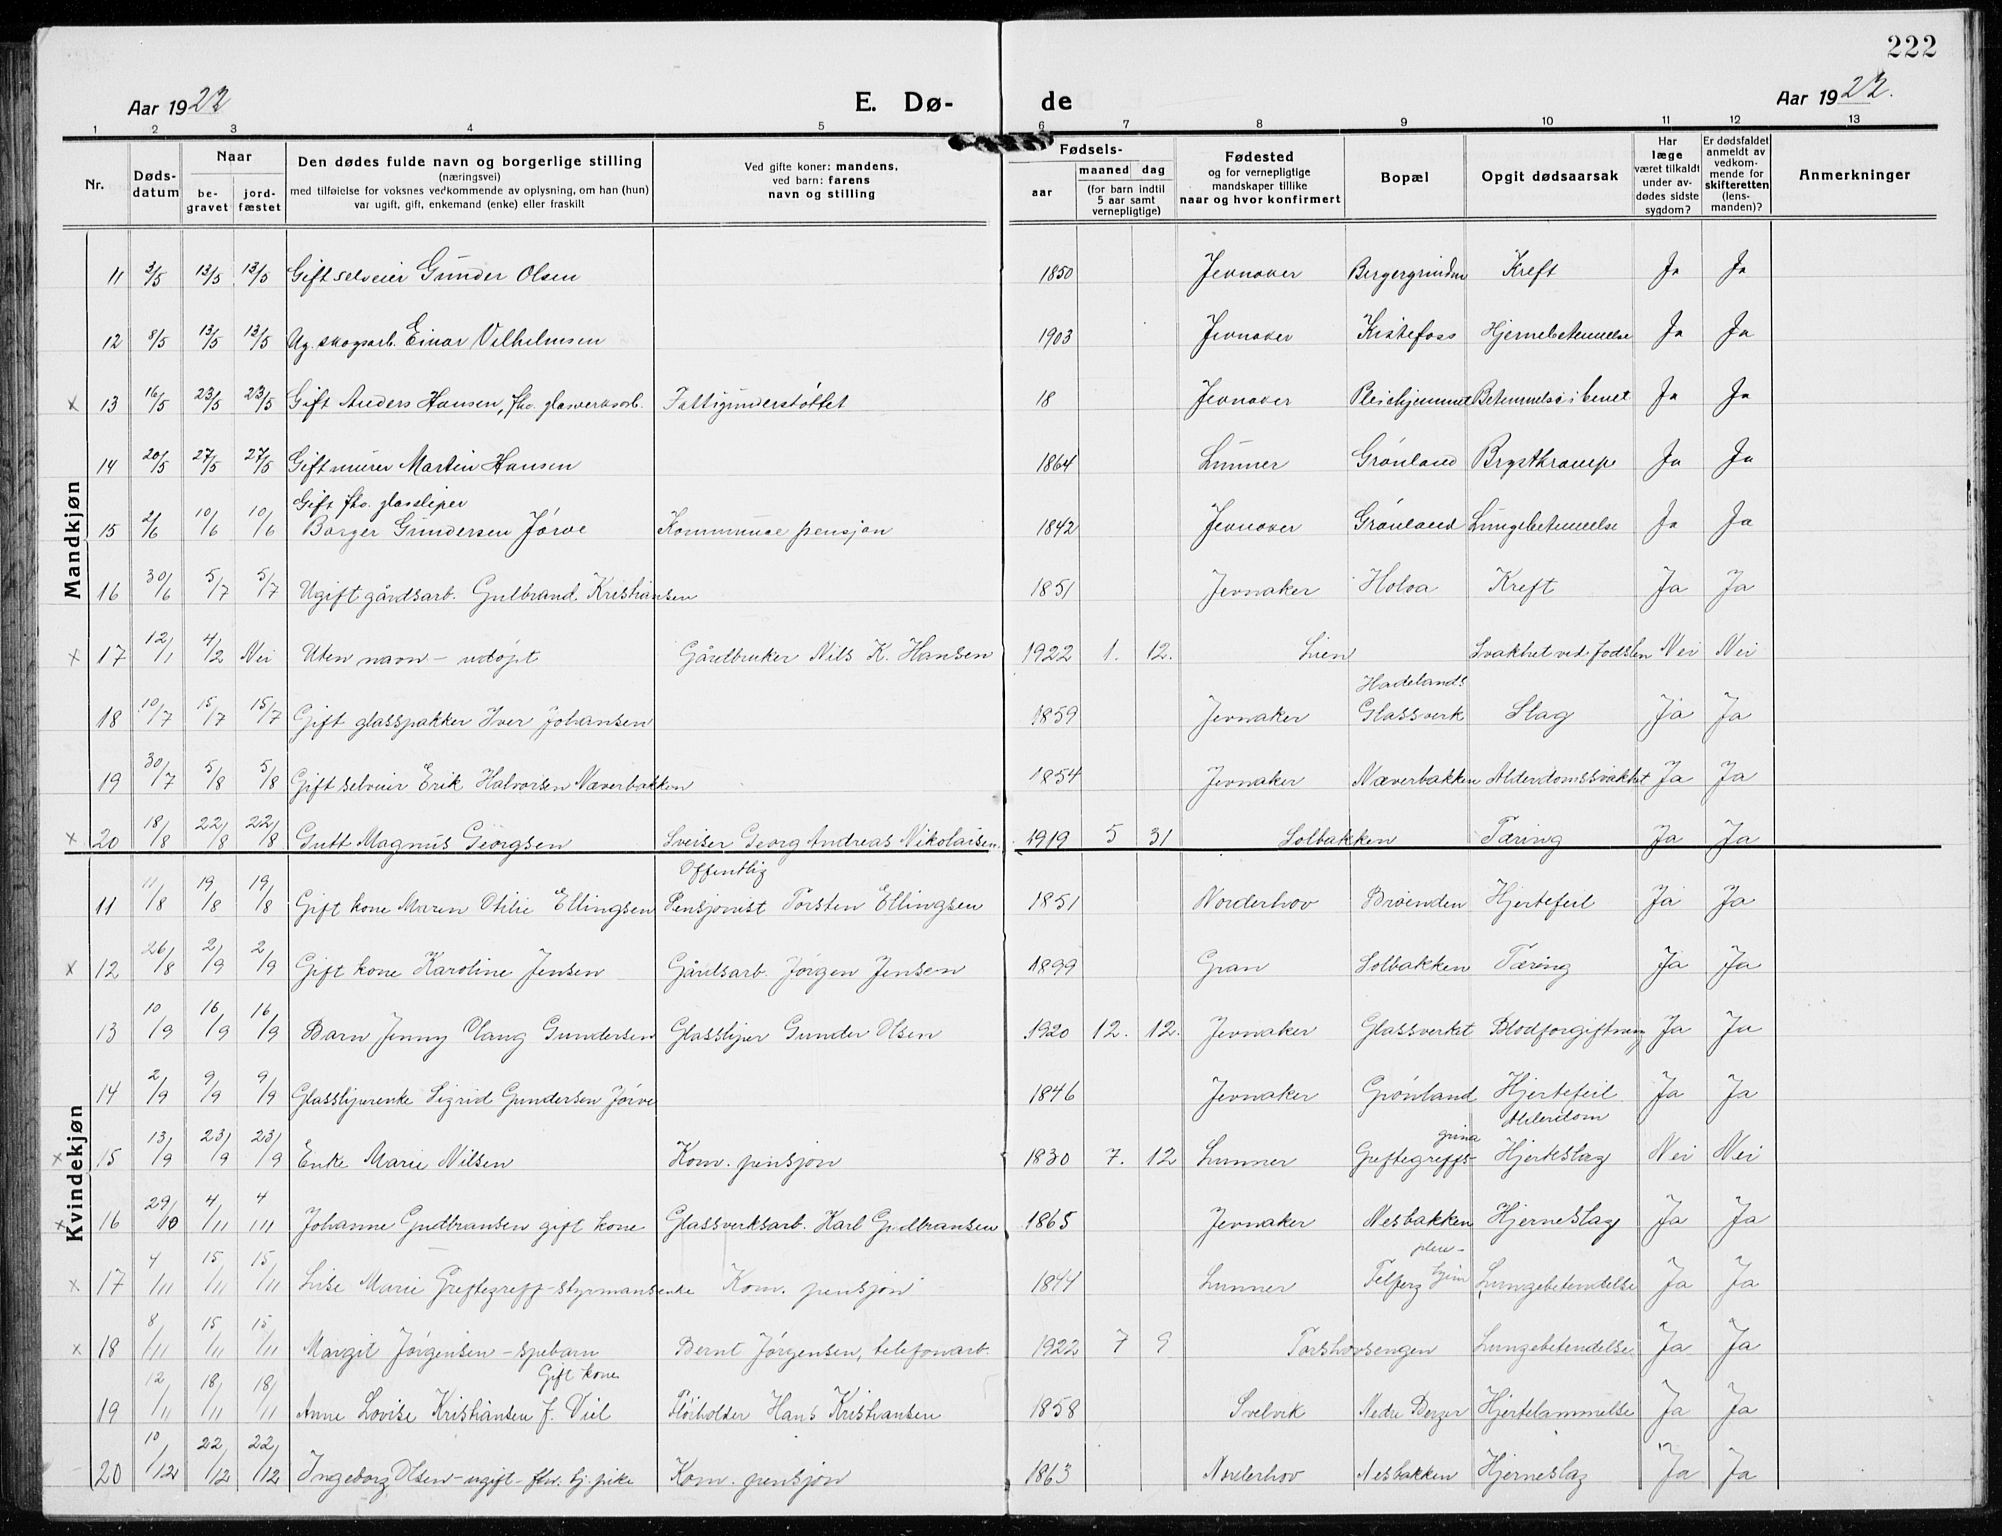 222
Aar 1922
E. Dø-
de
Aar 1922.
1 2 3 4 5 6 7 8 9 10 11 12 13
Nr.
Døds-datum
Naar
be-gravet
jord-fæstet
Den dødes fulde navn og borgerlige stilling
(næringsvei)
med tilføielse for voksnes vedkommende av oplysning, om han (hun)
var ugift, gift, enkemand (enke) eller fraskilt
Ved gifte koner: mandens,
ved barn: farens
navn og stilling
Fødsels-
aar
maaned dag
(for barn indtil
5 aar samt
vernepligtige)
Fødested
og for vernepligtige
mandskaper tillike
naar og hvor konfirmert
Bopæl
Opgit dødsaarsak
Har
læge
været tilkaldt
under av-
dødes sidste
sygdom?
Er dødsfaldet
anmeldt av
vedkom-
mende for
skifteretten
(lens-
manden)?
Anmerkninger
Mandkjøn
11 3/5 13/5 13/5 Gift selveier Gunder Olsen 1850 Jevnaker Bergergrinden Kreft Ja Ja
12 8/5 13/5 13/5 Ug. skogsarb. Einar Vilhelmsen 1903 Jevnaker Kistefoss Hjernebetennelse Ja Ja
x 13 16/5 23/5 23/5 Gift Anders Hansen, fhv. glasverksarb. Fattigunderstøttet 18 Jevnaker Pleiehjemmet Betennelse i benet Ja Ja
14 20/5 27/5 27/5 Gift murer Martin Hansen 1864 Lunner Grønland Brystkrampe Ja Ja
Gift fhv. glassliper
15 2/6 10/6 10/6 Borger Gundersen Jørve Kommunepensjon 1842 Jevnaker Grønland Lungebetennelse Ja Ja
16 30/6 5/7 5/7 Ugift gårdsarb. Gulbrand Kristiansen 1851 Jevnaker Holoa Kreft Ja Ja
x 17 12/1 4/2 Nei Uten navn – udøpt Gårdbruker Nils K. Hansen 1922 1. 12. Lien Svakhet ved fødslen Nei Nei
Hadelands
18 10/7 15/7 15/7 Gift glasspakker Iver Johansen 1859 Jevnaker Glassverk Slag Ja Ja
19 30/7 5/8 5/8 Gift selveier Erik Halvorsen Næverbakken 1854 Jevnaker Næverbakken Alderdomssvakhet Ja Ja
x 20 18/8 22/8 22/8 Gutt Magnus Georgsen Sveiser Georg Andreas Nikolaisen 1919 5 31 Solbakken Tæring Ja Ja
Kvindekjøn
Offentlig
11 11/8 19/8 19/8 Gift kone Maren Otilie Ellingsen Pensjonist Torsten Ellingsen 1851 Norderhov Brøenden Hjertefeil Ja Ja
x 12 26/8 2/9 2/9 Gift kone Karoline Jensen Gårdsarb. Jørgen Jensen 1899 Gran Solbakken Tæring Ja Ja
13 10/9 16/9 16/9 Barn Jenny Vang Gundersen Glassliper Gunder Olsen 1920 12. 12. Jevnaker Glassverket Blodforgiftning Ja Ja
14 2/9 9/9 9/9 Glassliperenke Sigrid Gundersen Jørve 1846 Jevnaker Grønland Hjertefeil Ja Ja
grina Alderdom
x 15 13/9 23/9 23/9 Enke Marie Nilsen Kom. pensjon 1830 7. 12 Lunner Greftegreffs- Hjerteslag Nei Nei
x 16 29/10 4/11 4/11 Johanne Gudbransen gift kone Glassverksarb. Karl Gudbransen 1865 Jevnaker Nesbakken Hjerneslag Ja Ja
pleie-
x 17 4/11 15/11 15/11 Lise Marie Greftegreff – styrmansenke Kom. pensjon 1844 Lunner hjem Lungebetendelse Ja Ja
x 18 8/11 15/11 15/11 Margit Jørgensen – spebarn Bernt Jørgensen, telefonarb. 1922 7 9 Torshovsengen Lungebetendelse Ja Ja
Gift kone
19 12/11 18/11 18/11 Anne Lovise Kristiansen f. Viel Fløiholder Hans Kristiansen 1858 Svelvik Nedre Berger Hjertelammelse Ja Ja
20 10/12 22/12 22/12 Ingeborg Olsen – ugift – fhv. tj. pike Kom. pensjon 1863 Norderhov Nesbakken Hjerneslag Ja Ja